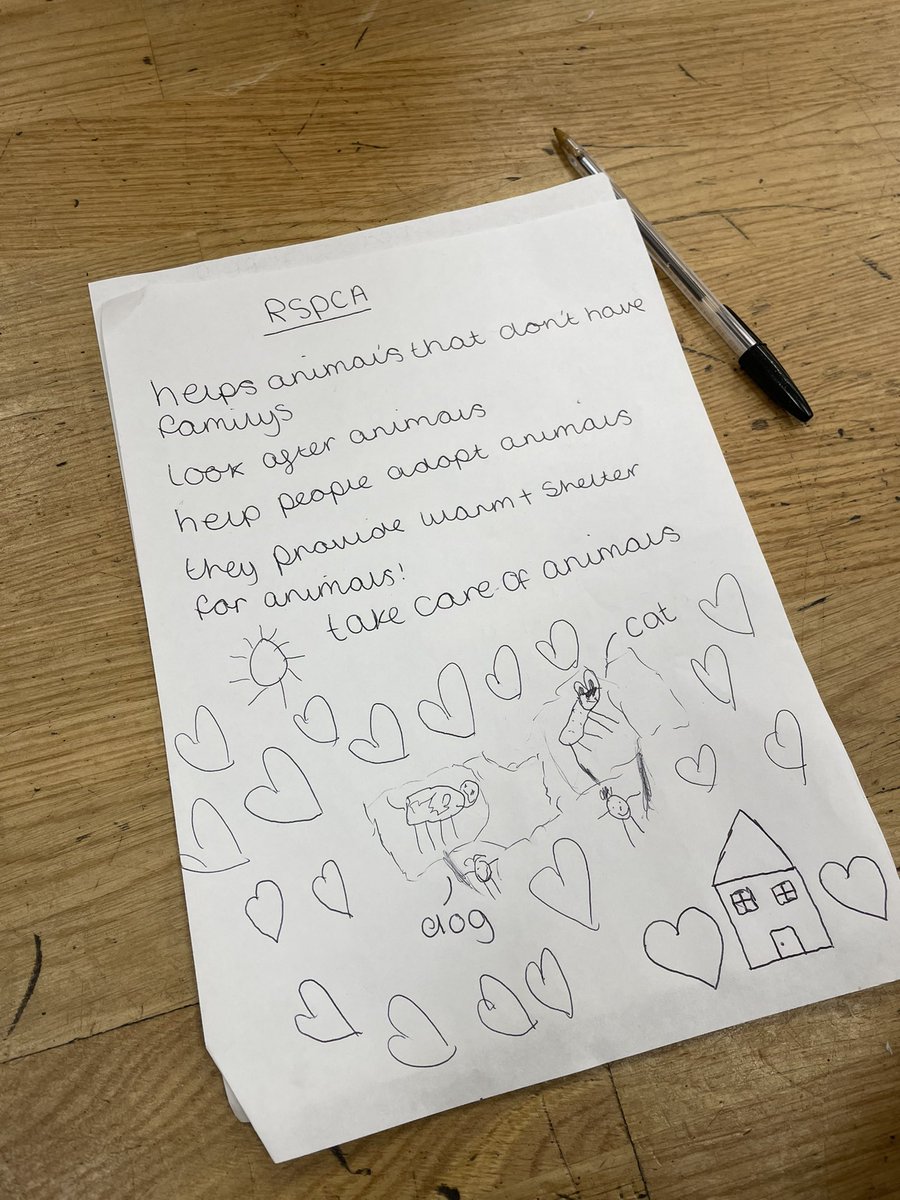 RSPCA
helps animals that don't have
familys
look after animals
help people adopt animals
they provide warm + shelter
for animals!
take care of animals
cat
dog